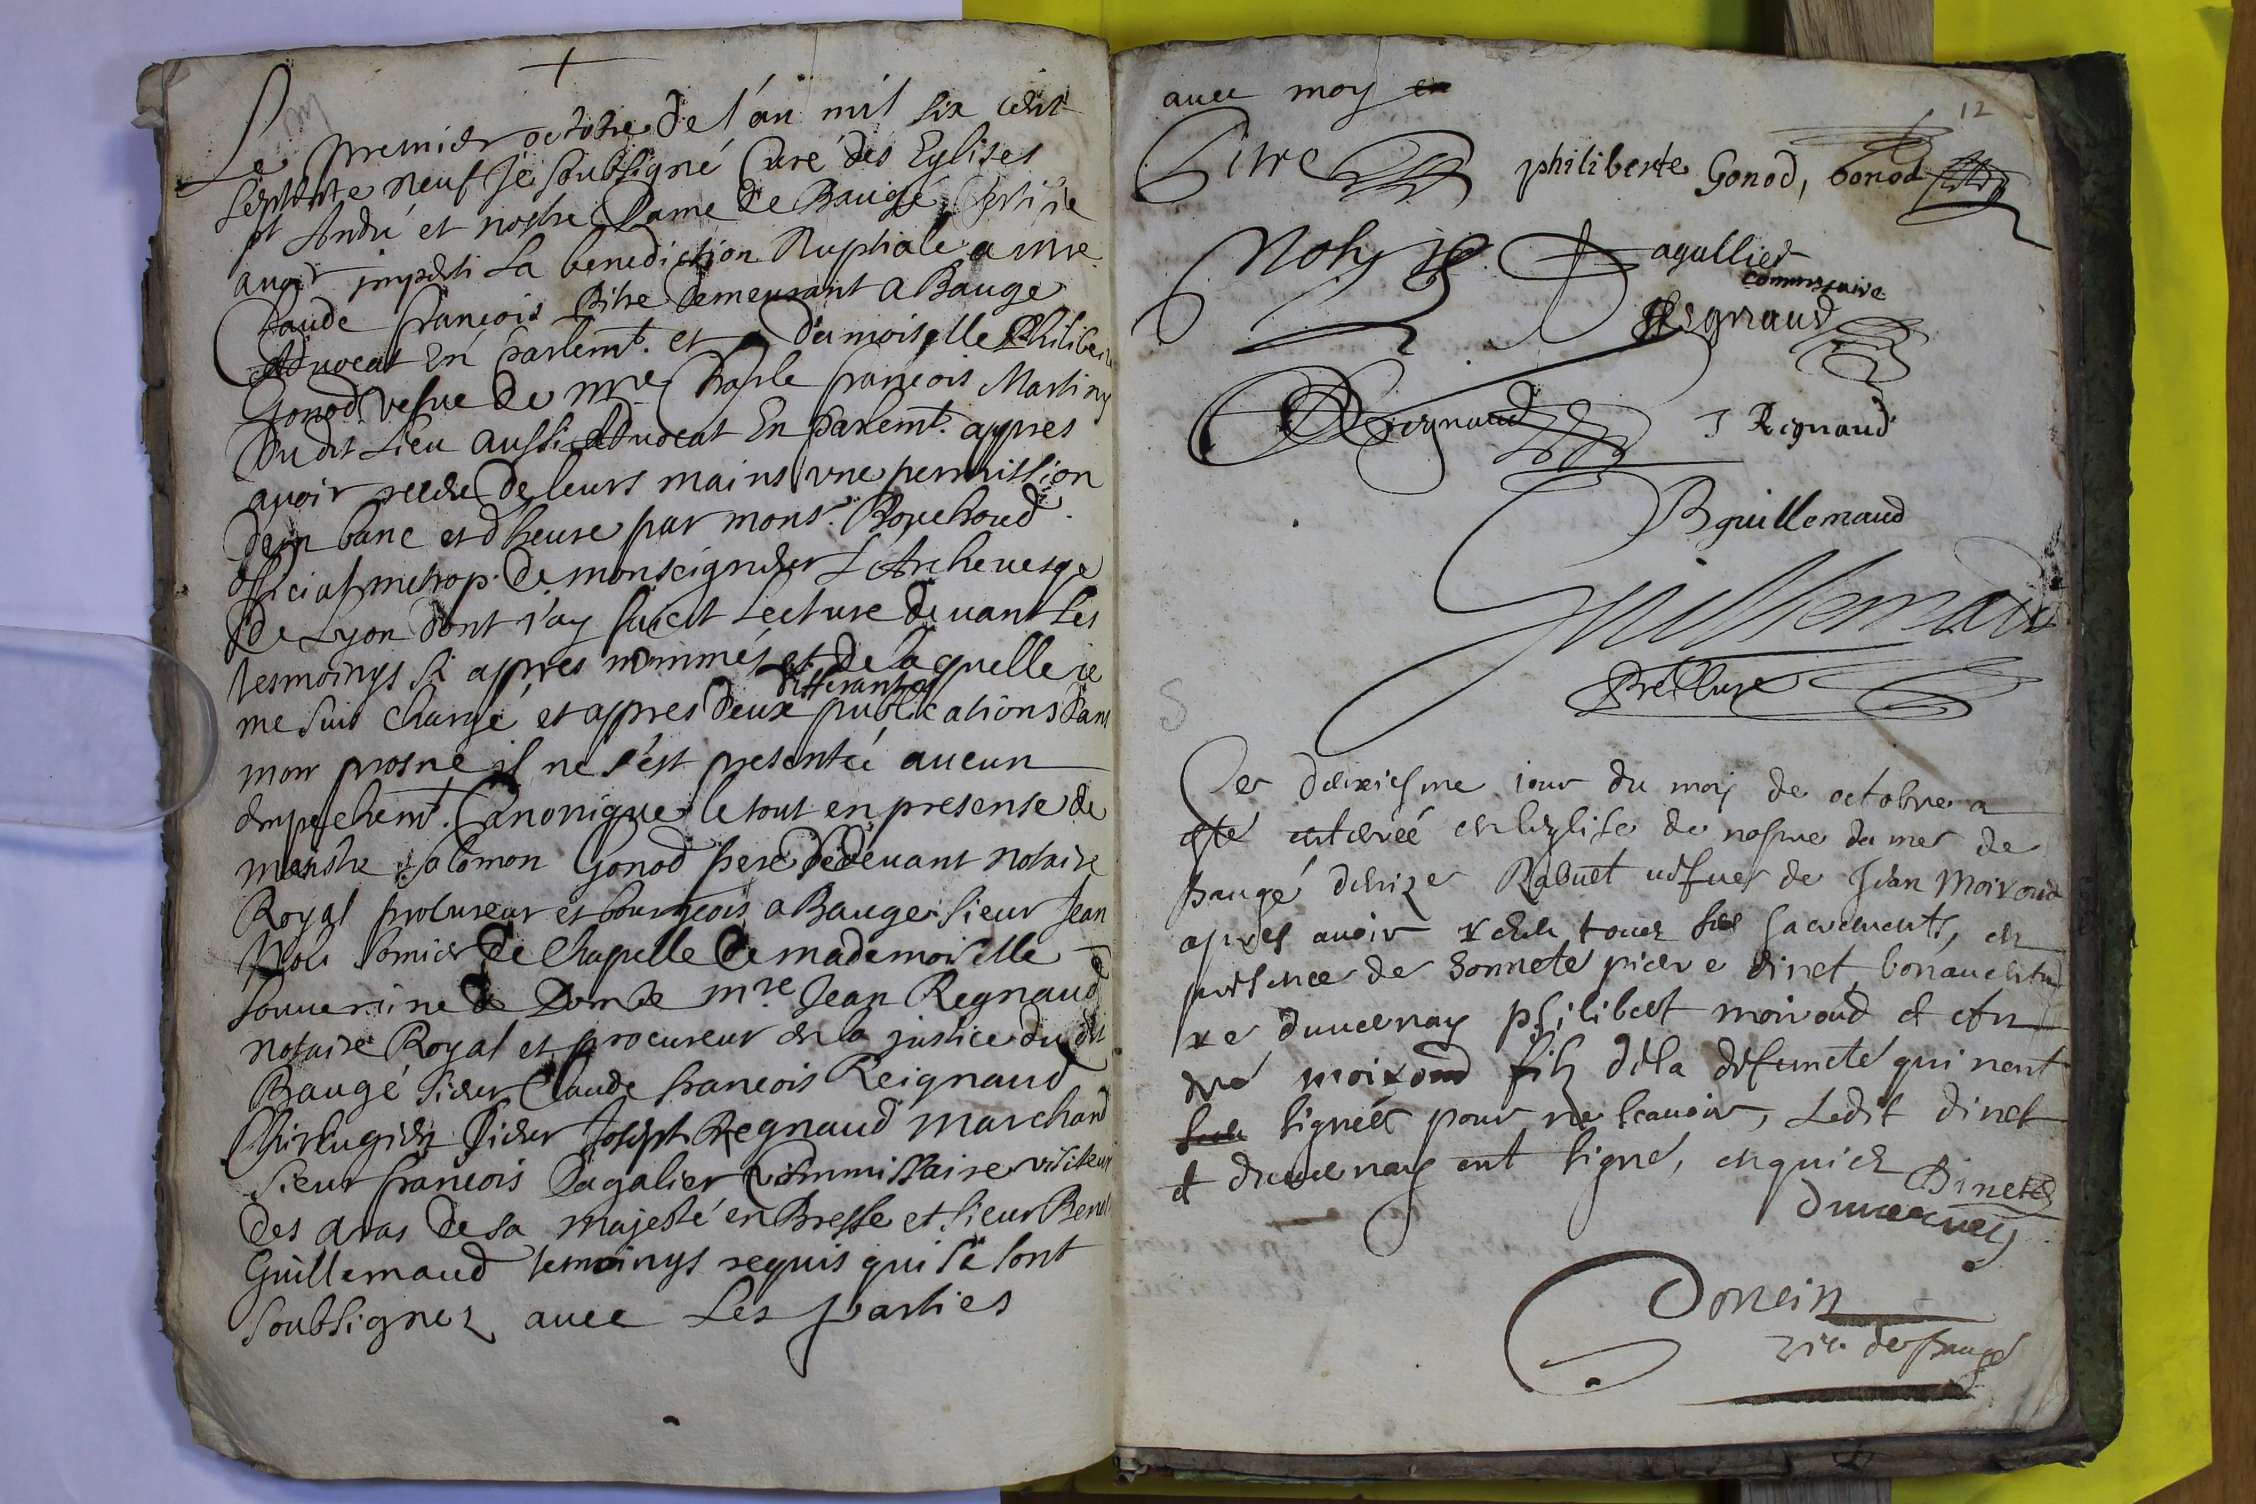 Le premier octobre de l'an mil six cent
septante neuf Je soubsigné Curé des Eglises
st André et nostre Dame de Baugé Certifie
avoir imparti La benediction Nuptiale a mre
Claude françois Pitre demeurant a Bauge
Advocat En Parlemt. et a damoiselle Philiberte
Gonod vefve de mre Charle françois Martin
du dit Lieu aussi Advocat En Parlemt. appres
avoir receu de leurs mains vne permission
d'un banc et d'heure par monsr. Bouchoud
official metrop. de monseigneur L Archevesqe
de Lyon dont j'ay faict Lecture devant Les
tesmoings si appres nommés et de laquelle je
me suis chargé et appres deux differantes publications dans
mon prosne il ne s'est presentée aucun
empechemt. Canonique le tout en presense de
maistre salomon Gonod pere cy devant notaire
Royal procureur et bourgeois a Bauge sieur Jean
Noly somier de Chapelle de mademoiselle
souverine de Dombe mre Jean Regnaud
notaire Royal et procureur en la justice du dit
Baugé sieur Claude francois Reignaud
Chirugien sieur Joseph Regnaud marchand
sieur françois Dagalier Commissaire visiteur
des aras de sa majesté en Bresse et sieur Benoit
Guillemaud temoings requis qui se sont
soubsignez avec Les parties
12
avec moy
philiberte Gonod, Gonod
Noly Dagallier
commissaire
Regnaud
Reignaud J Regnaud
B guillemaud
Guillemaud
Ce deuxiesme jour du moy de octobre a
esté enterréé en leglise de nostre dames de
Baugé denize Rabuet vefve de Jean Moiroud
apres avoir receu tous ses sacrements, en
presence de honnete piere dinet, bonaventu
re duvernay philibert moiroud et An
dré moiroud filz dela defuncte qui nont
signéé pour ne scavoir, Ledit dinet
et duvernay ont signé, enquis
Dinet
duvernay
Donein
vic. de Baugé